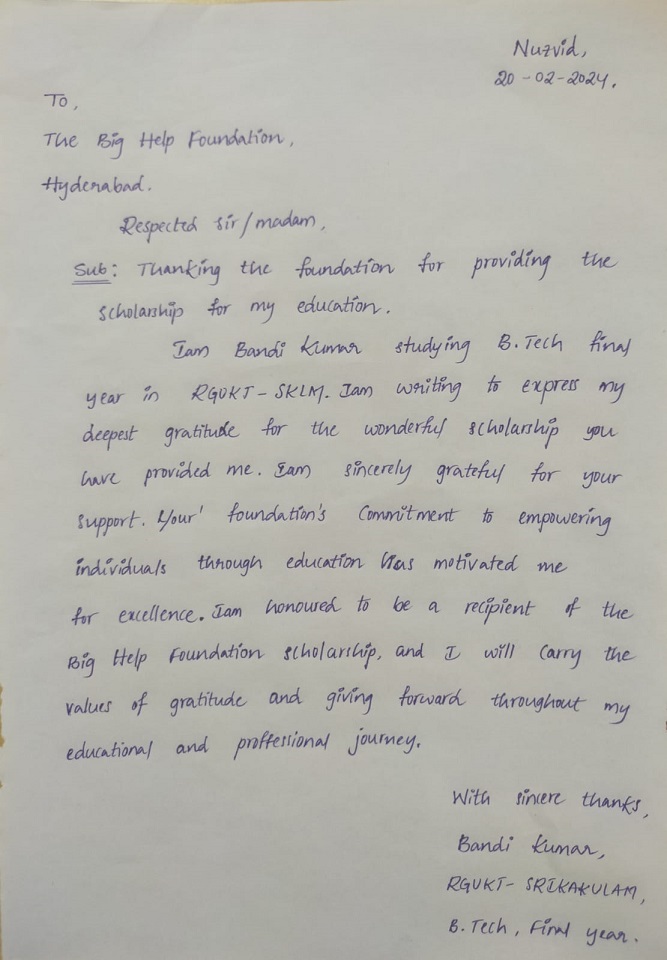 Nuzvid,
20-02-2024.
To,
The Big Help Foundation,
Hyderabad.
Respected sir/madam,
Sub: Thanking the foundation for providing the
scholarship for my education.
Iam Bandi Kumar studying B.Tech final
year in RGUKT-SKLM. Iam writing to express my
deepest gratitude for the wonderful scholarship you
have provided me. Iam sincerely grateful for your
support. Your' foundation's commitment to empowering
individuals through education has motivated me
for excellence. Iam honoured to be a recipient of the
Big Help Foundation scholarship, and I will carry the
values of gratitude and giving forward throughout my
educational and proffessional journey.
With sincere thanks,
Bandi Kumar,
RGUKT- SRIKAKULAM,
B.Tech, Final year.